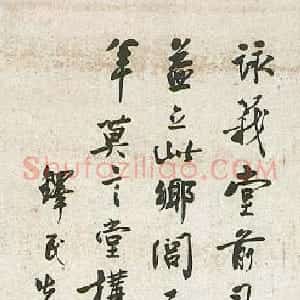 詠莪堂前
益立此鄉閭
年莫言堂構
鐸民
Shufaziliao.com